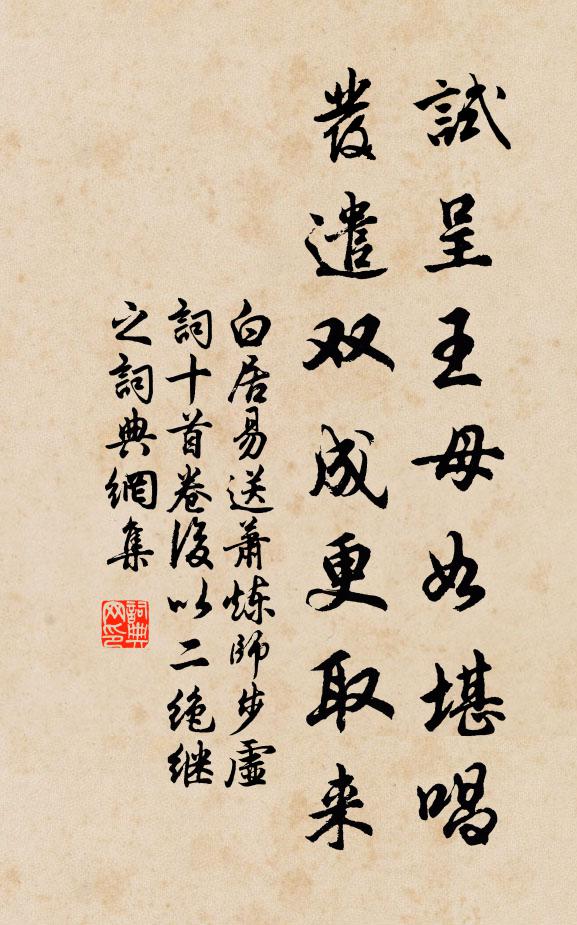 試呈王母如堪唱
發遣双成更取来
白居易送蕭炼師步虛
詞十首卷後以二绝继
之詞典網集
詞典
网印